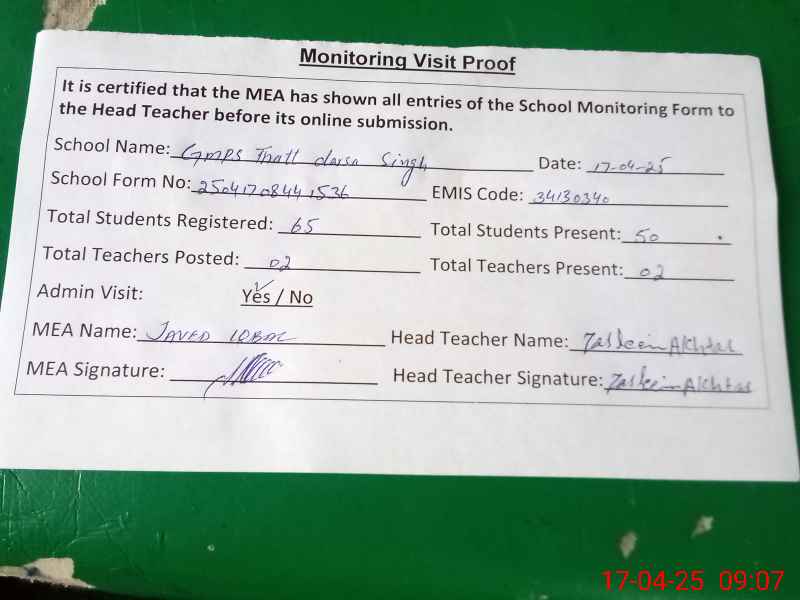 Monitoring Visit Proof
It is certified that the MEA has shown all entries of the School Monitoring Form to
the Head Teacher before its online submission.
School Name: GMPS Thatt darsa Singh Date: 17-04-25
School Form No: 2504170844 1536 EMIS Code: 34130340
Total Students Registered: 65 Total Students Present: 50
Total Teachers Posted: 02 Total Teachers Present: 02
Admin Visit: Yes / No
MEA Name: JAVED IQBAL Head Teacher Name: Tasleem Akhtar
MEA Signature: Head Teacher Signature: Tasleem Akhtar
17-04-25 09:07